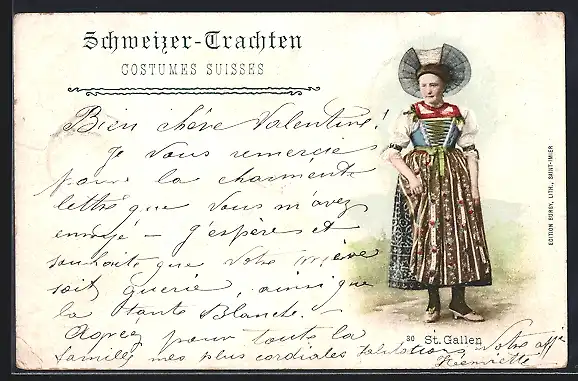 Schweizer-Trachten
COSTUMES SUISSES
Bien chère Valentine!
Je vous remercie
pour la charmante
lettre que vous m'avez
envoyé — j'espère et
souhaite que votre mère
soit guerie, ainsi que
la tante Blanche. —
Agréez pour toute la
famille mes plus cordiales salutations Votre affée
Henriette
30 St. Gallen
EDITION BURDY, LITH., SAINT-IMIER